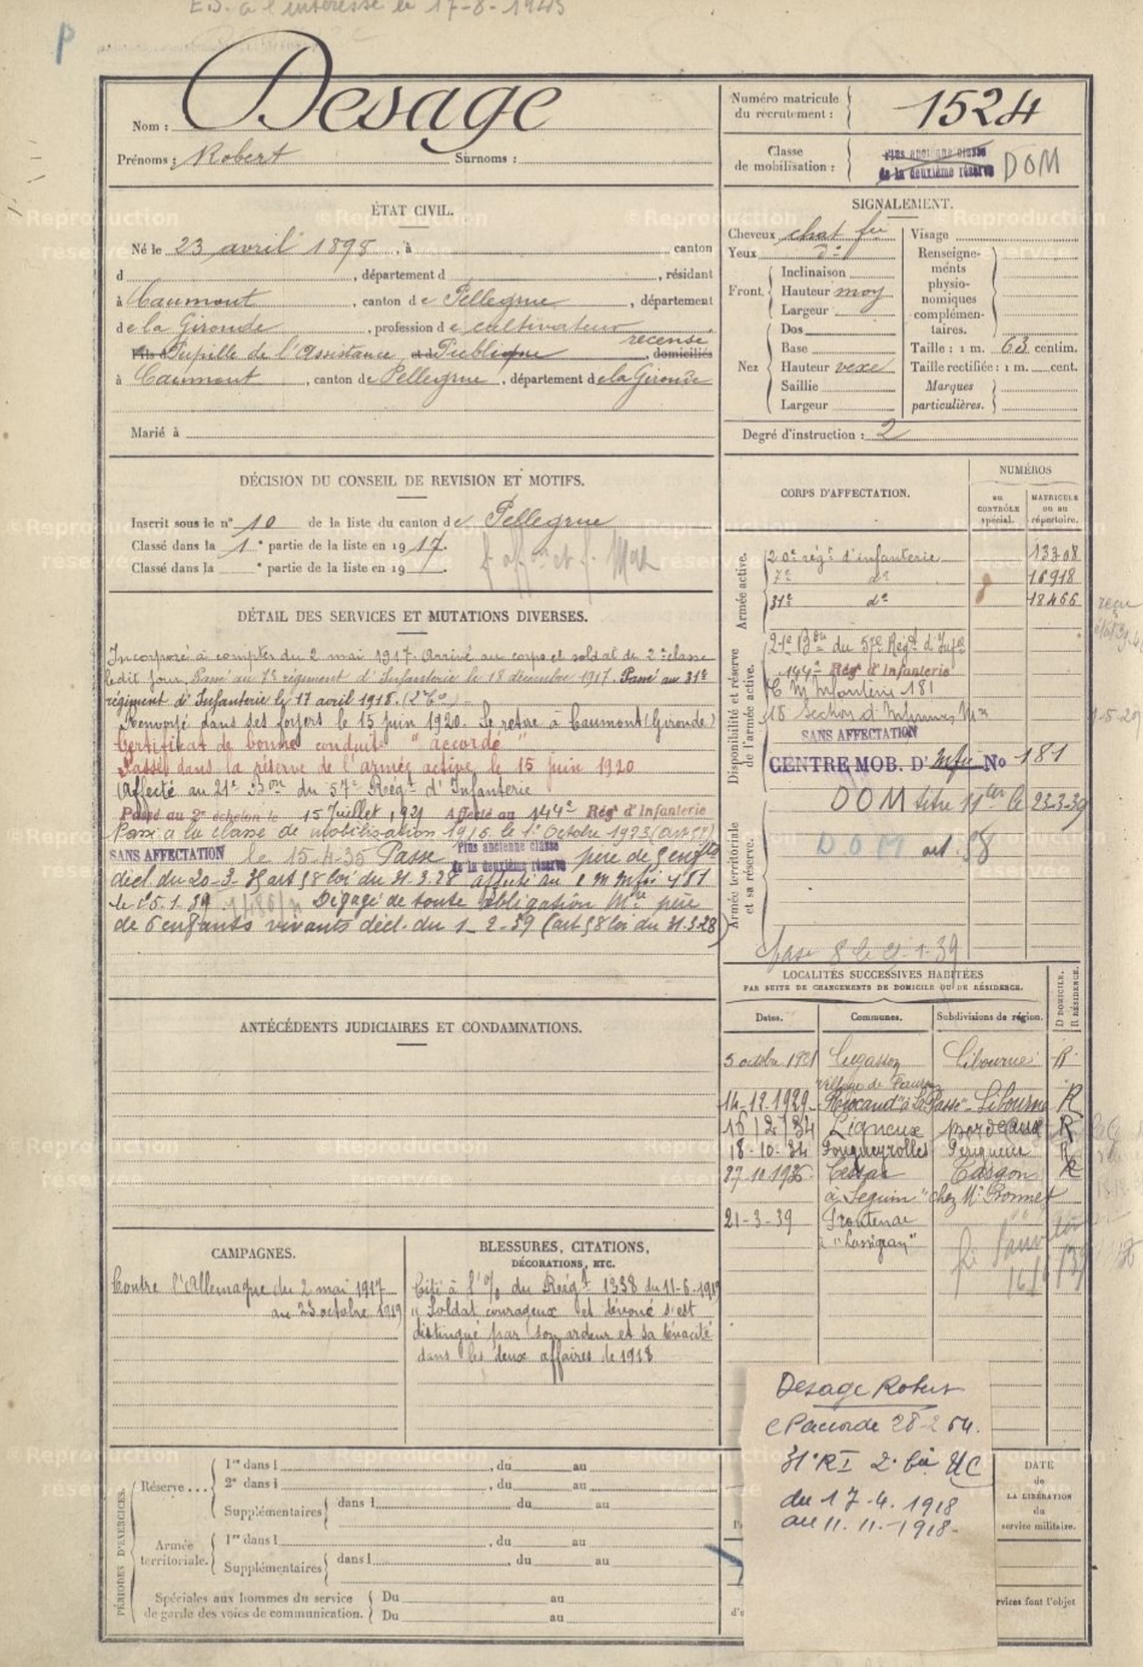 E.S. à l'intéressé le 17-8-1943
P
Nom : Desage
Prénoms : Robert Surnoms :
Numéro matricule
du recrutement : 1524
Classe
de mobilisation : Plus ancienne classe
de la deuxième réserve DOM
ÉTAT CIVIL.
Né le 23 avril 1898, à canton
d , département d , résidant
à Caumont , canton de Pellegrue , département
de la Gironde , profession de cultivateur
recensé
Pupille de l'Assistance et d Publique domiciliés
à Caumont , canton de Pellegrue , département de la Gironde
Marié à
SIGNALEMENT.
Cheveux chat fcé
Yeux d°
Front. Inclinaison
Hauteur moy
Largeur
Nez Dos
Base
Hauteur vexe
Saillie
Largeur
Visage
Renseigne-
ments
physio-
nomiques
complémen-
taires.
Taille : 1 m. 63 centim.
Taille rectifiée : 1 m. cent.
Marques
particulières.
Degré d'instruction : 2
DÉCISION DU CONSEIL DE REVISION ET MOTIFS.
Inscrit sous le n° 10 de la liste du canton de Pellegrue
Classé dans la 1e partie de la liste en 1917.
Classé dans la e partie de la liste en 19
DÉTAIL DES SERVICES ET MUTATIONS DIVERSES.
Incorporé à compter du 2 mai 1917. Arrivé au corps et soldat de 2e classe
ledit jour, Passé au 7e régiment d'Infanterie le 18 décembre 1917. Passé au 31e
régiment d'Infanterie le 17 avril 1918.
Renvoyé dans ses foyers le 15 juin 1920. Se retire à Caumont (Gironde)
Certificat de bonne conduite "accordé"
Passé dans la réserve de l'armée active le 15 juin 1920
Affecté au 21e Bon du 57e Régt d'Infanterie
Passé au 2e échelon le 15 Juillet 1921 Affecté au 144e Rég' d'Infanterie
Passé à la classe de mobilisation 1916 le 1er Octobre 1923 (art 58)
SANS AFFECTATION le 15-4-35 Passé Plus ancienne classe
de la deuxième réserve père de 5 enfts
décl. du 20-3-35 art 58 loi du 31.3.28 affecté au C M Infie 181
le 15.1.39 Dégagé de toute obligation Mre père
de 6 enfants vivants décl. du 1-2-39 (art 58 loi du 31.3.28)
CORPS D'AFFECTATION.
NUMÉROS
au
CONTRÔLE
spécial.
MATRICULE
ou au
répertoire.
Armée active.
20e régt d'infanterie 13708
7e d° 16918
31e d° 18466
Disponibilité et réserve
de l'armée active.
21e Bon du 57e Régt d'Infie
144e Rég' d'Infanterie
C M Infanterie 181
18 Section d'Infirmiers Mres
SANS AFFECTATION
CENTRE MOB. D'Infie No 181
Armée territoriale
et sa réserve.
DOM titre 11ter le 23-3-39
DOM art. 58
LOCALITÉS SUCCESSIVES HABITÉES
PAR SUITE DE CHANGEMENTS DE DOMICILE OU DE RÉSIDENCE.
D DOMICILE.
R RÉSIDENCE.
Dates. Communes. Subdivisions de région.
5 octobre 1921 Lugasson Libourne R
14-12-1929 Libourne R
15/2/34 Ligneux Bordeaux R
18-10-34 Fougueyrolles Périgueux R
27.10.1935 Cessac R
à Seguin "chez Mr Bonnet
21-3-39 Frontenac
à "Lassigran"
ANTÉCÉDENTS JUDICIAIRES ET CONDAMNATIONS.
CAMPAGNES.
Contre l'Allemagne du 2 mai 1917
au 23 octobre 1919
BLESSURES, CITATIONS,
DÉCORATIONS, ETC.
Cité à l'o/ du Régt 1338 du 11-6-1919
"Soldat courageux et dévoué s'est
distingué par son ardeur et sa ténacité
dans les deux affaires de 1918
PÉRIODES D'EXERCICES.
Réserve... 1re dans l , du au
2e dans l , du au
Supplémentaires dans l du au
Armée
territoriale. 1re dans l , du au
Supplémentaires dans l , du au
Spéciales aux hommes du service
de garde des voies de communication. Du au
Du au
Desage Robert
C Paccorde 28-2 64.
31e RI 2e Bie UC
du 17-4-1918
au 11.11.-1918-
DATE
de
LA LIBÉRATION
du
service militaire.
rvices font l'objet
©Reproduction
réservée